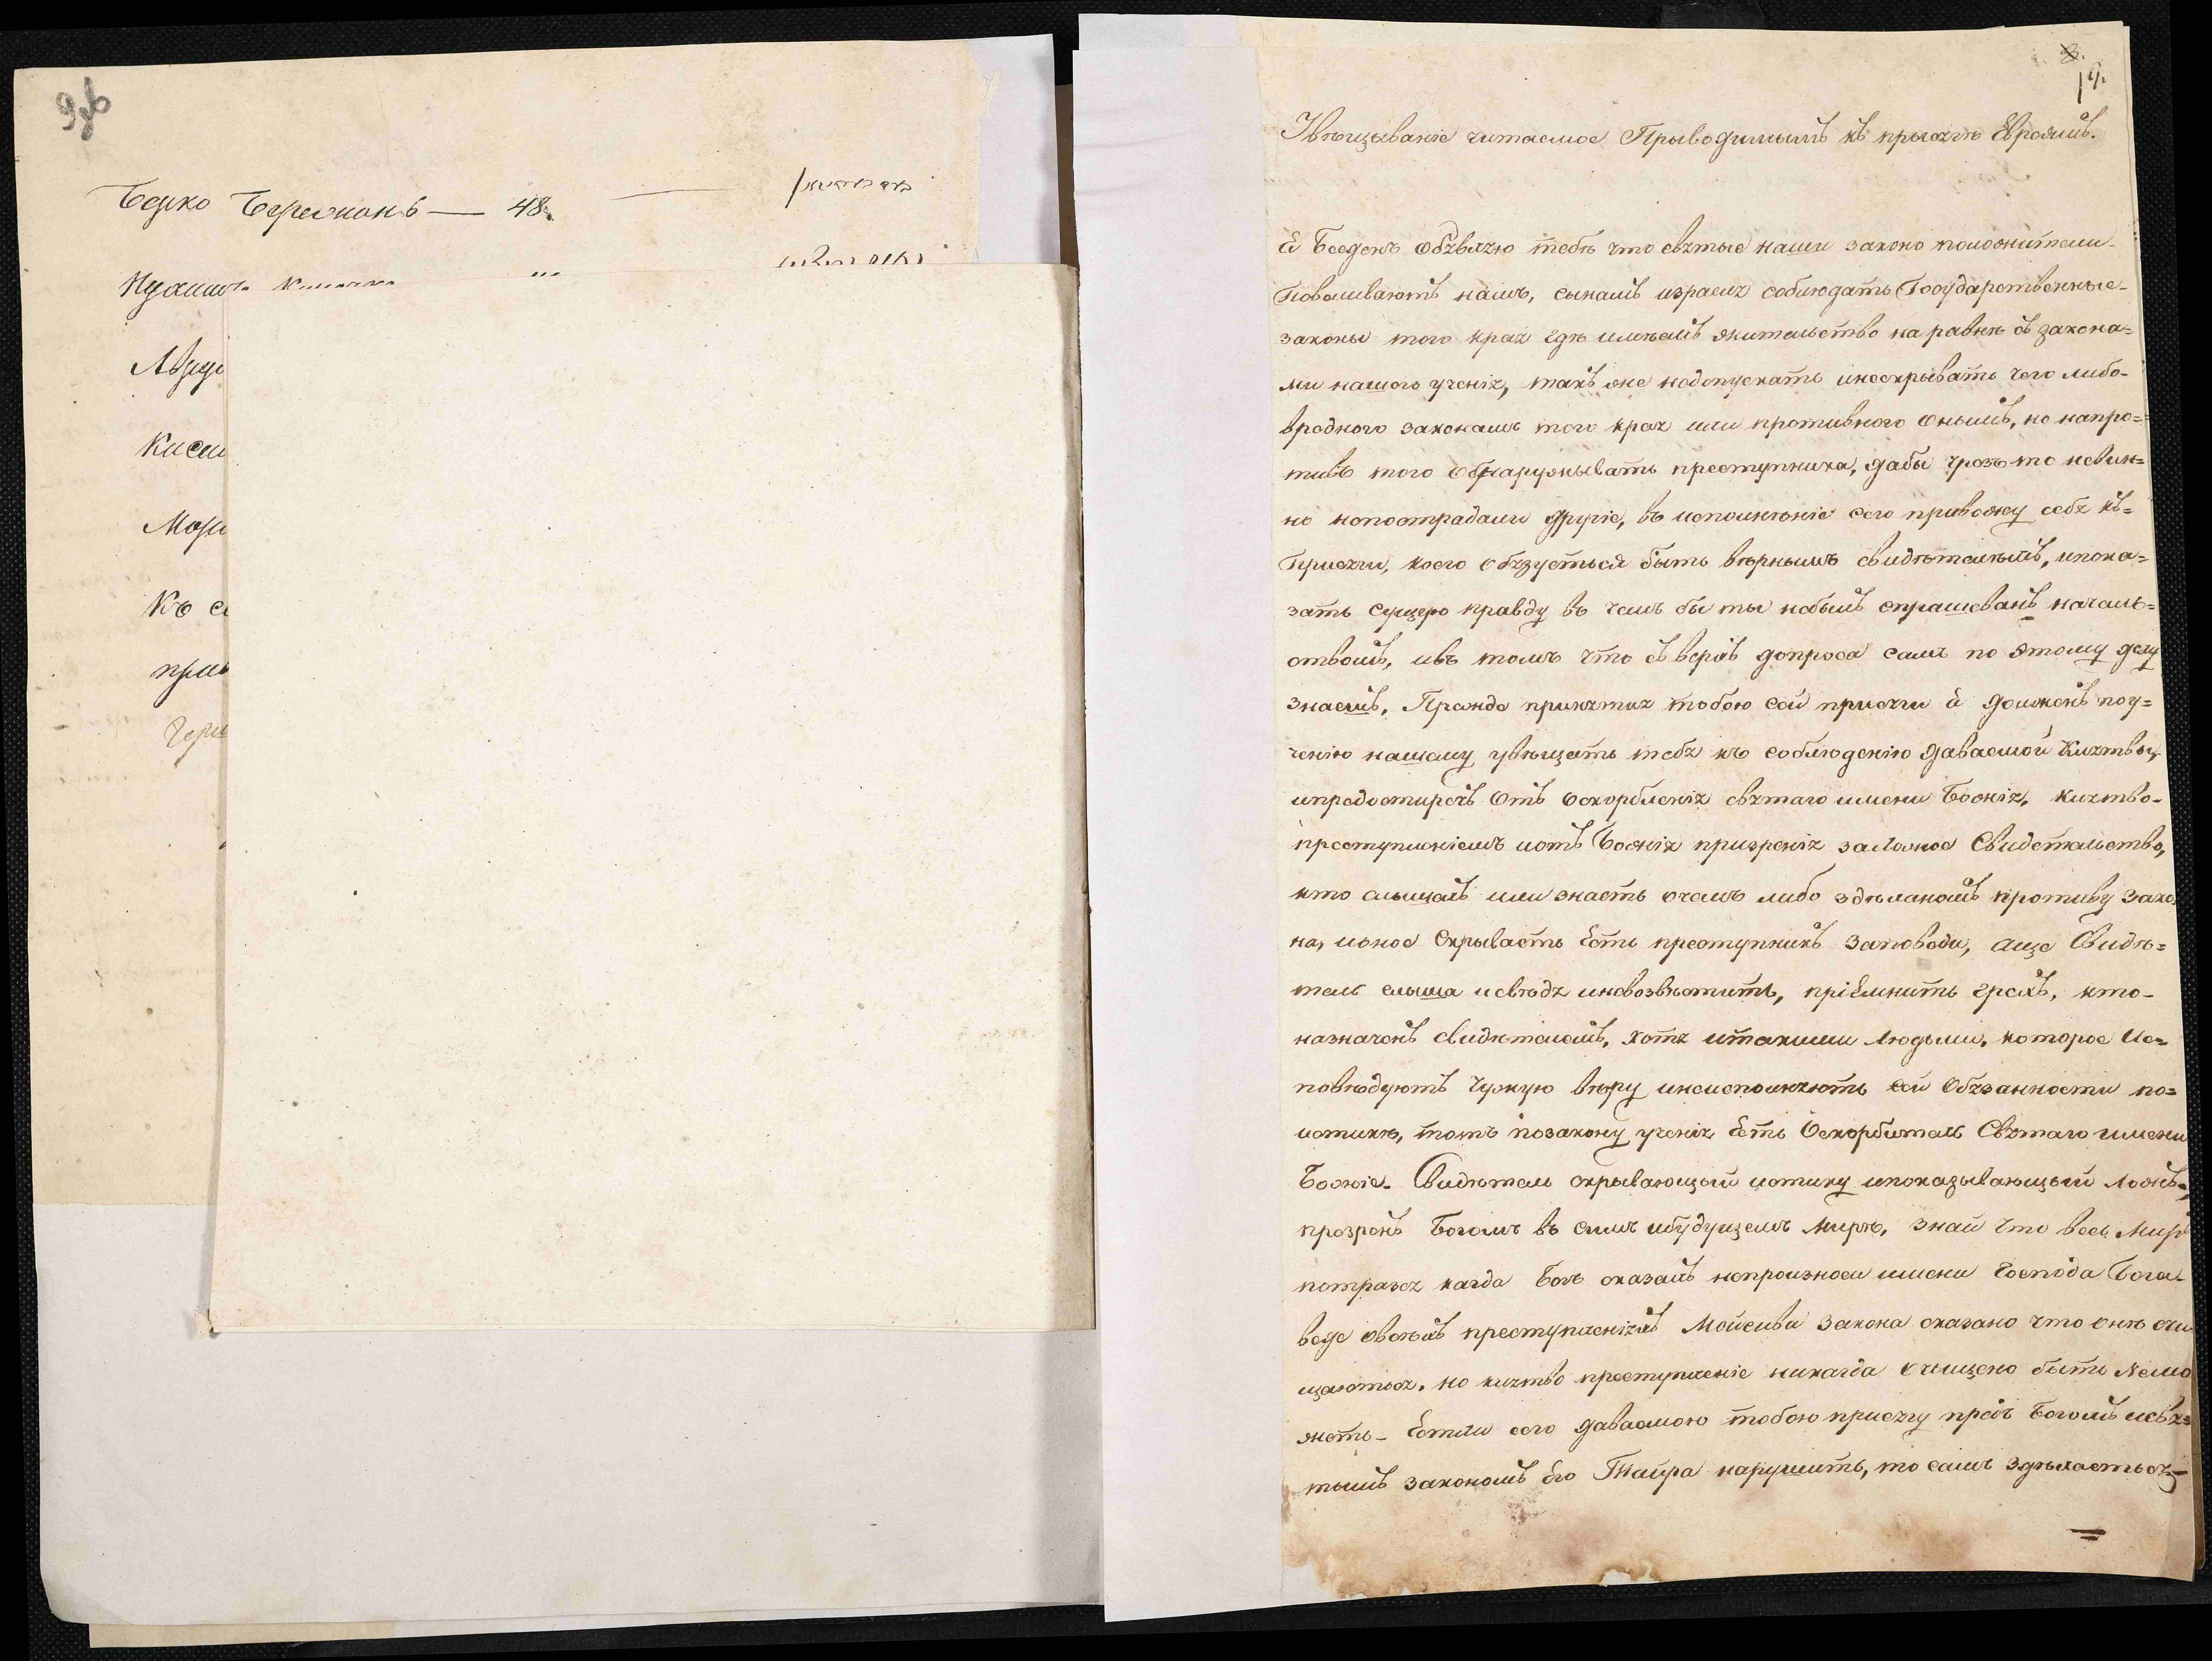 Берко Берманъ — 48.
Авру
Кисил
Мор
Къ с
при
Чер
19.
Увѣщываніе читаемое Прыводимымъ къ прысягѣ Евреямъ.
Я Беэденъ объвляю тебѣ что святые наши законо положители
Повелеваютъ намъ, сынамъ израеля соблюдать Государственные
законы того края гдѣ имѣемъ жительство на равнѣ съ закона=
ми нашого ученія, такъ же недопускать инескрывать чего либо
вредного законамъ того края или противного онымъ, но напро=
тивъ того обнаружывать преступника, дабы чрозъ то невин=
но непострадали другіе, въ исполненіе сего привожу себя къ=
Присяги, коего обязуеться быть вѣрнымъ свидѣтелемъ, ипока=
зать сущую правду въ чемъ бы ты небылъ спрашеванъ началь=
ствомъ, ивъ томъ что съверхъ допроса самъ по этому делу
знаешъ, Прежде принятия тобою сей присяги я долженъ поу=
ченію нашему увѣщеть тебя къ соблюденію даваемой Клятвы,
ипредостиречь отъ оскорбленія святаго имени Божія, клятво-
преступленіемъ иотъ Божія призренія заложное Свидетельство,
кто слышалъ или знаетъ очемъ либо здѣланомъ противу зако
на, ионое Скрываетъ есть преступникъ заповоди, аще Свидѣ=
тель слыша исвѣдя иневозвѣститъ, пріемнитъ грехъ, кто-
назначенъ свидѣтелемъ, хотя итакими людьми, которое ис=
повѣдуютъ чужую вѣру инеисполняютъ сей обязанности по=
истинѣ, тотъ позакону ученія есть оскорбитель Святаго имени
Божіе. Свидѣтель скрывающый истину ипоказывающый ложь,
презренъ Богомъ въ семъ ибудущемъ мирѣ, знай что весь миръ
потрясся кагда Богъ сказалъ непроизноси имени Господа Бога
веде овсѣхъ преступленіяхъ Мойсива Закона сказано что онѣ очи
щаються. но клятво преступленіе никагда очыщено быть немо
жетъ. Естли сего даваемою тобою присягу предъ Богомъ исвя=
тымъ закономъ его Тайра нарушитъ, то самъ здѣлаеться